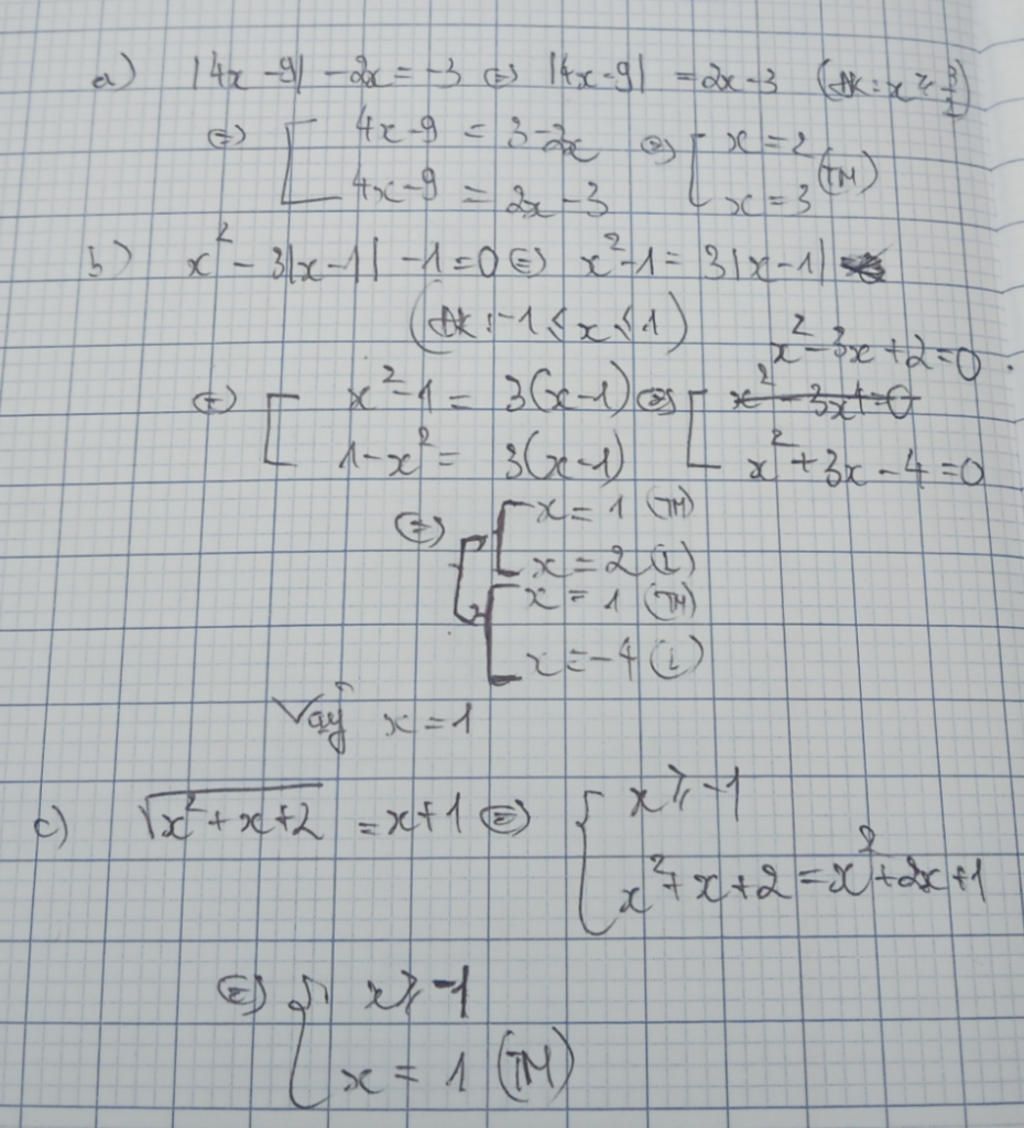 a) |4x - 9| - 2x = -3 ⇔ |4x - 9| = 2x - 3 (ĐK: x ≥ 3/2)
⇔ [ 4x - 9 = 3 - 2x ⇔ [ x = 2
4x - 9 = 2x - 3 x = 3 (TM)
b) x² - 3|x - 1| - 1 = 0 ⇔ x² - 1 = 3|x - 1|
(ĐK: -1 ≤ x ≤ 1)
x² - 3x + 2 = 0
⇔ [ x² - 1 = 3(x - 1) ⇔ [
1 - x² = 3(x - 1) x² + 3x - 4 = 0
⇔ [ [ x = 1 (TM)
x = 2 (L)
[ x = 1 (TM)
x = -4 (L)
Vậy x = 1
c) √x² + x + 2 = x + 1 ⇔ { x ≥ -1
x² + x + 2 = x² + 2x + 1
⇔ { x ≥ -1
x = 1 (TM)